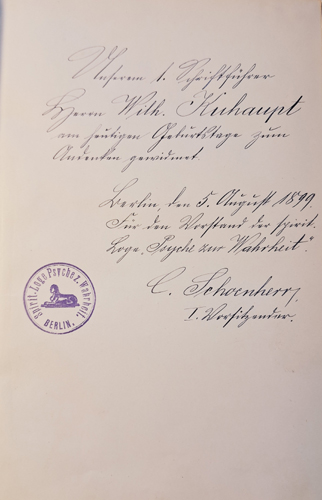 Unserem 1. Schriftführer
Herrn Wilh. Kuhaupt
am heutigen Geburtstage zum
Andenken gewidmet.
Berlin, den 5. August 1899.
Für den Vorstand der spirit.
Loge „Psyche zur Wahrheit“.
C. Schoenherr,
I. Vorsitzender.
Spirit.-Loge Psyche z. Wahrheit.
BERLIN.